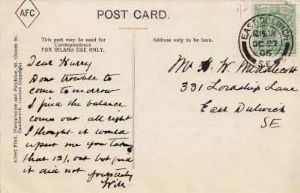 AFC
POST CARD.
This part may be used for
Correspondence
FOR INLAND USE ONLY.
Address only to be here.
Dear Harry
Dont trouble to
come tomorrow
I find the balance
comes out all right
I thought it would
upset me you taking
that 12/. out but find
it did not
Will
Mr H. W. Middlecott
331 Lordship Lane
East Dulwich
SE
EAST DULWICH
OC 27
S.E.